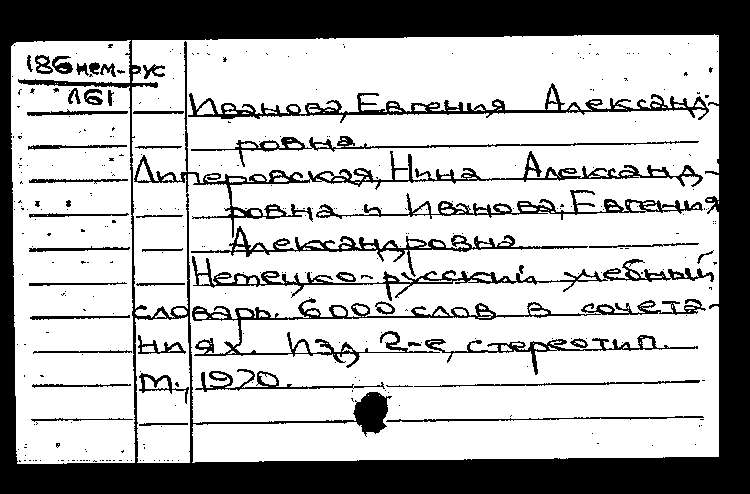 186 нем-рус
Л61
Иванова, Евгения Александ-
ровна.
Липеровская, Нина Александ-
ровна и Иванова, Евгения
Александровна.
Немецко-русский учебный
словарь. 6000 слов в сочета-
ниях. Изд. 2-е, стереотип.
М., 1970.